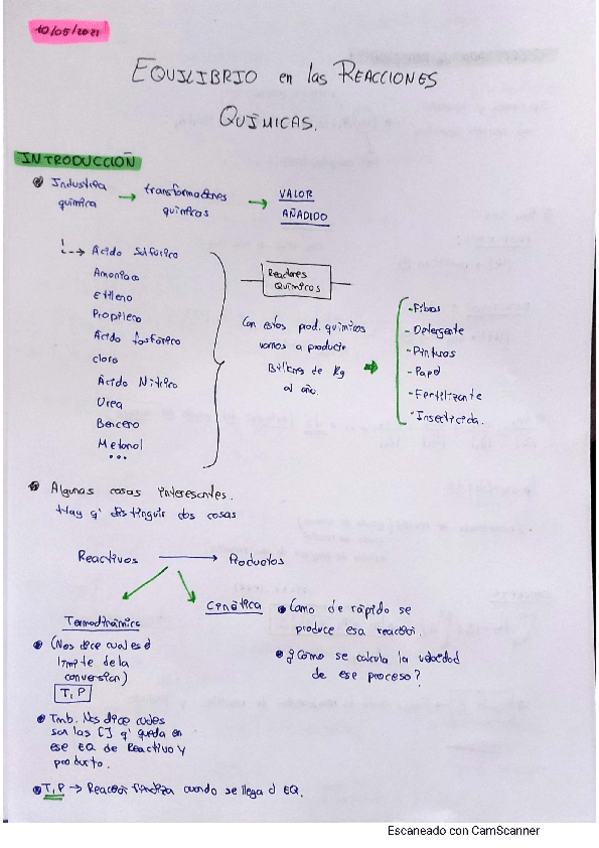 10/05/2021
EQUILIBRIO en las REACCIONES
QUÍMICAS.
INTRODUCCIÓN
Industria química → transformaciones químicas → VALOR AÑADIDO
Ácido Sulfúrico
Amoniaco
Etileno
Propileno
Ácido fosfórico
cloro
Ácido Nítrico
Urea
Benceno
Metanol
...
Reactores
Químicos
Con estos prod. químicos
vamos a producir
Billons de Kg
al año.
-Fibras
-Detergente
-Pinturas
-Papel
-Fertilizante
-Insecticida.
Algunas cosas interesantes.
Hay q' distinguir dos cosas
Reactivos → Productos
Termodinámica
(Nos dice cual es el
límite de la
conversión)
T, P
Tmb. Nos dice cuales
son las [] q' queda en
ese EQ de Reactivo y
producto.
Cinética
Como de rápido se
produce esa reacción.
¿Cómo se calcula la velocidad
de ese proceso?
T, P → Reacción finaliza cuando se llega al EQ.
Escaneado con CamScanner